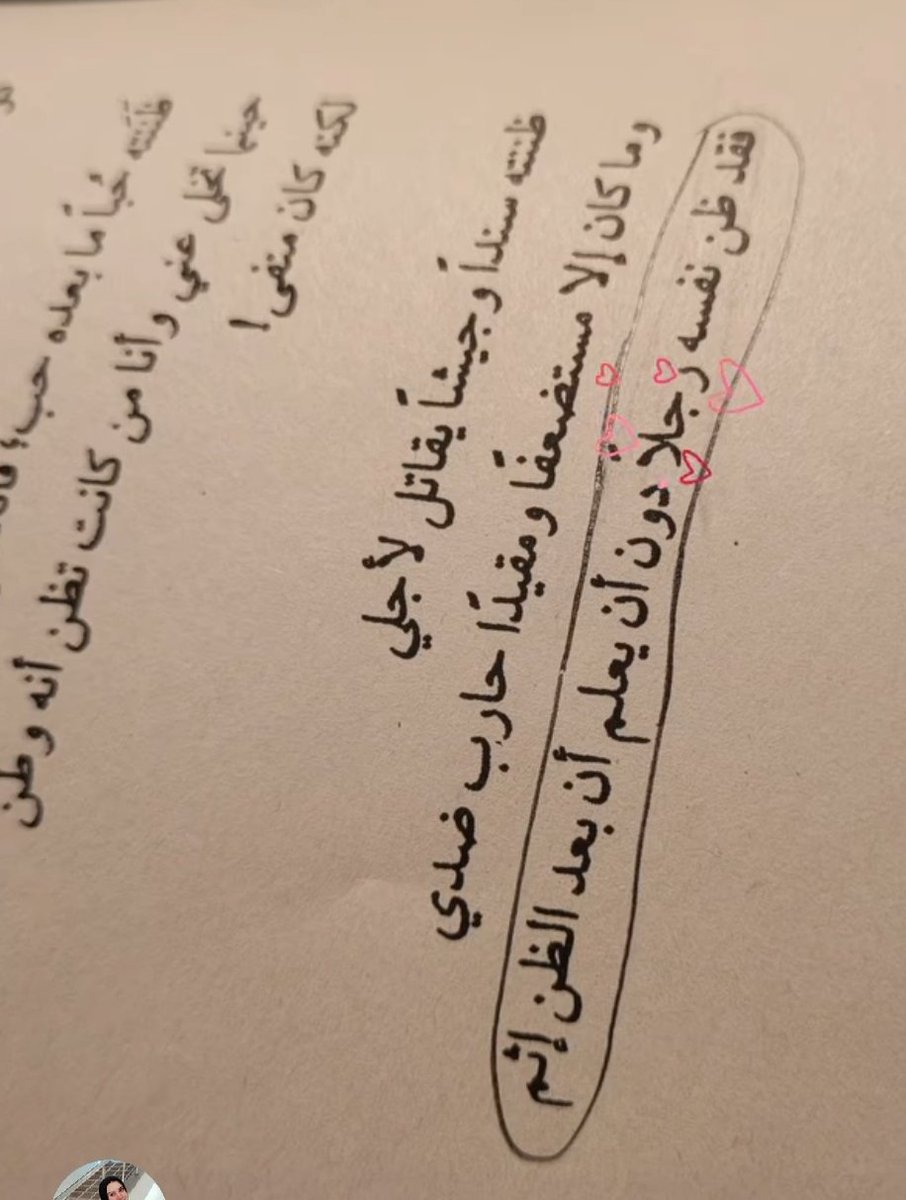 ظننته حُباً ما بعده حب،
حينما تخلى عني وأنا من كانت تظن أنه وطن
لكنه كان منفى!
ظننته سنداً وجيشاً يقاتل لأجلي
وما كان إلا مستضعفاً ومقيداً حارب ضدي
فقد ظن نفسه رجلاً دون أن يعلم أن بعد الظن إثم